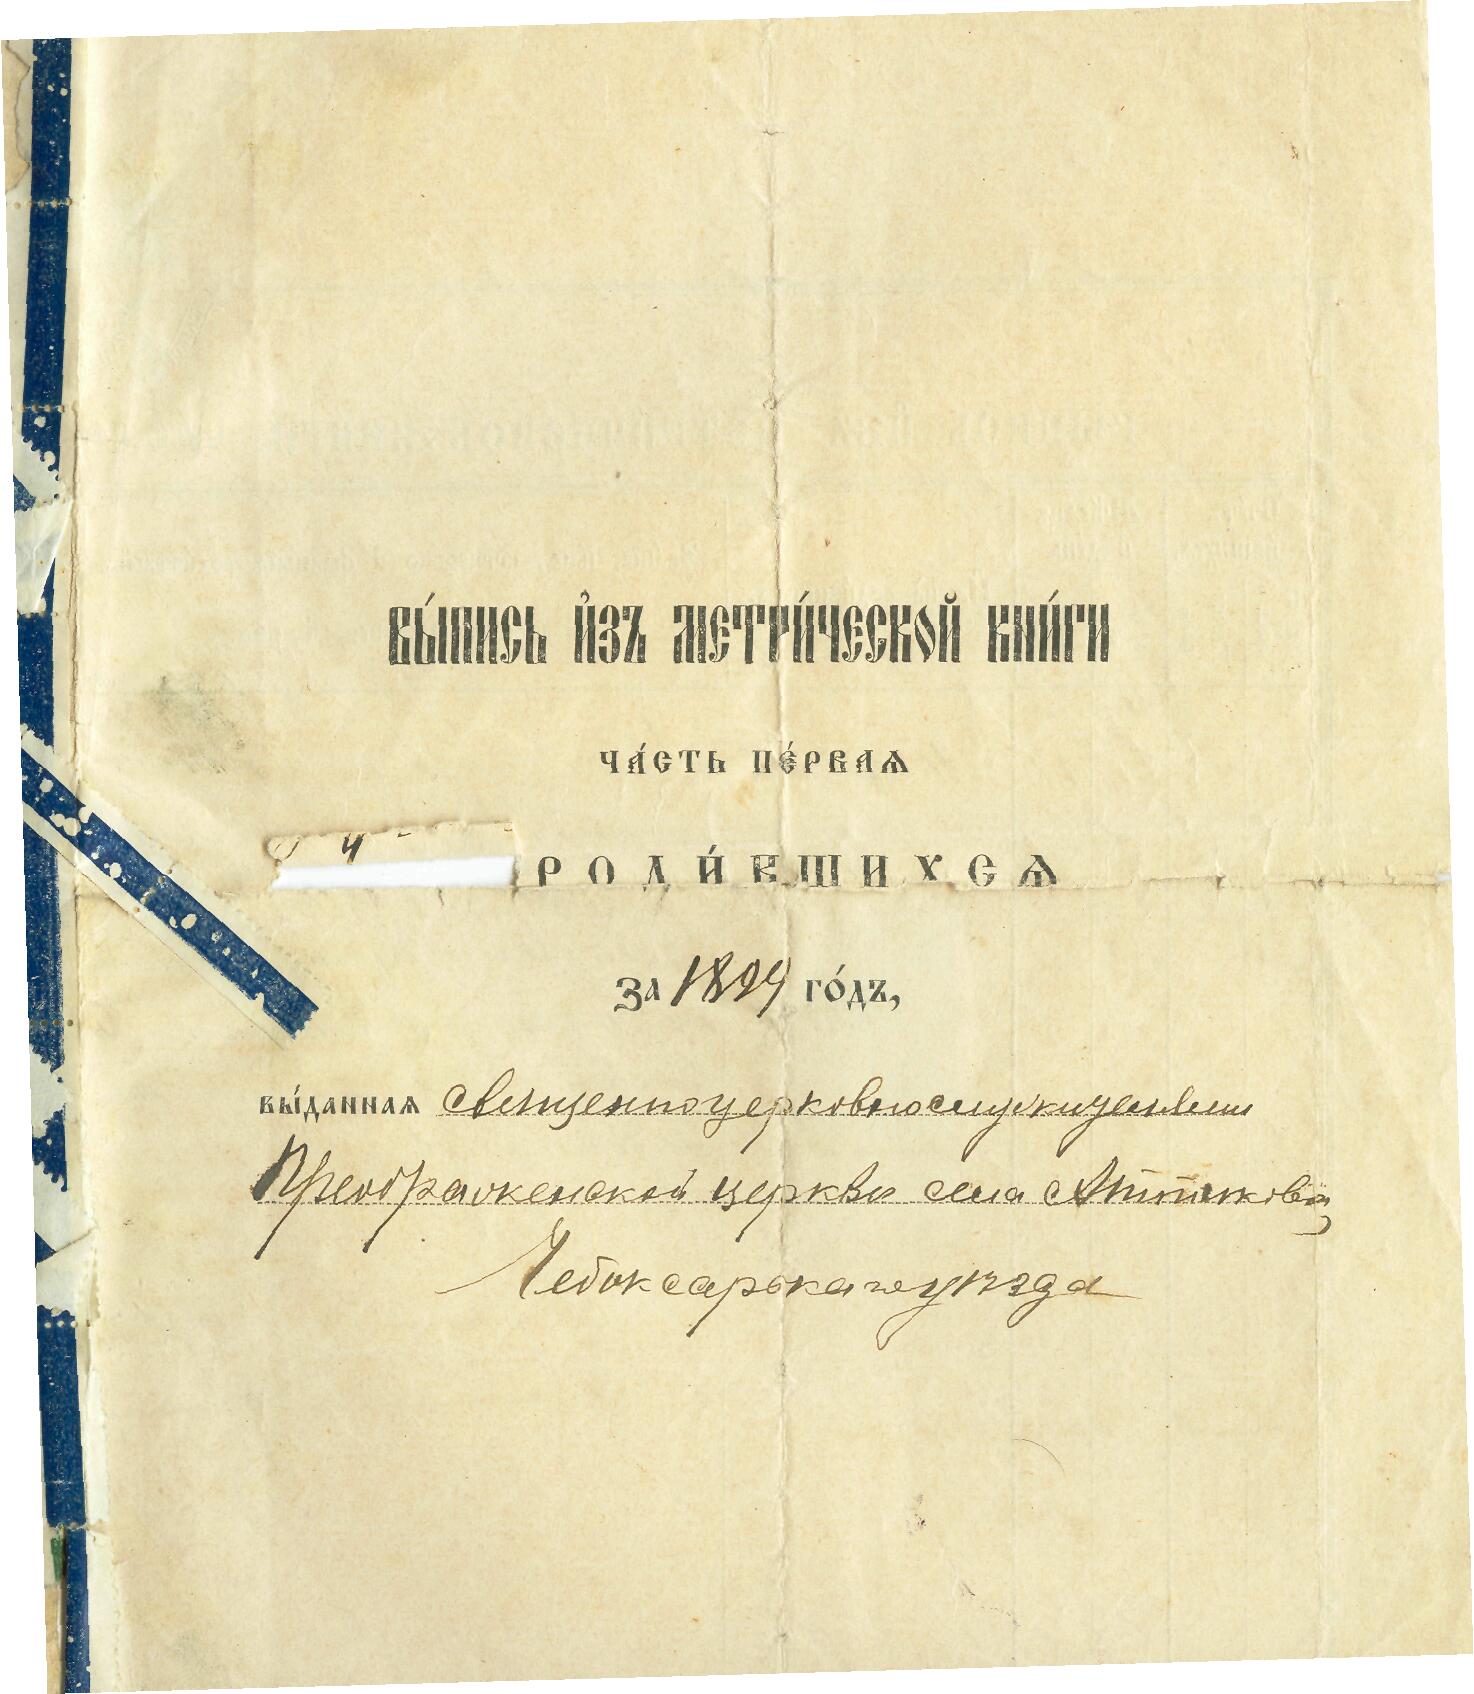 ВЫ́ПИСЬ И҆ЗЪ МЕТРИ́ЧЕСКОЙ КНИ́ГИ
ЧА́СТЬ ПЕ́РВАѦ
РОДИ́ВШИХСѦ
За 1894 го́дъ,
вы́даннаѧ священноцерковнослужителями
Преображенской церкви села Аттикова,
Чебоксарскаго уѣзда